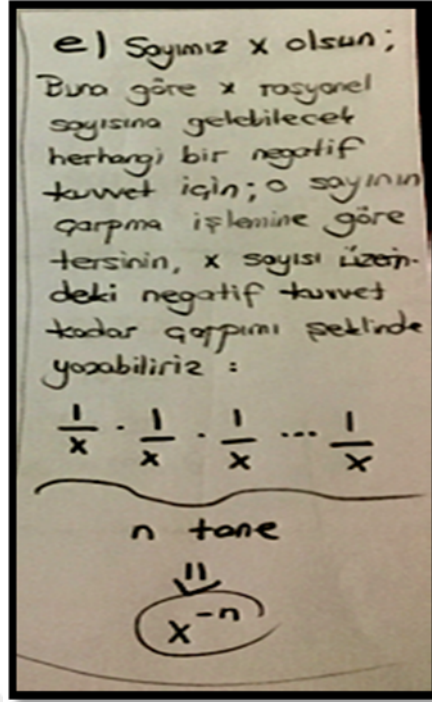 e) Sayımız x olsun;
Buna göre x rasyonel
sayısına gelebilecek
herhangi bir negatif
kuvvet için; o sayının
çarpma işlemine göre
tersinin, x sayısı üzerin-
deki negatif kuvvet
kadar çarpımı şeklinde
yazabiliriz :
1/x · 1/x · 1/x ... 1/x
n tane
=
x⁻ⁿ